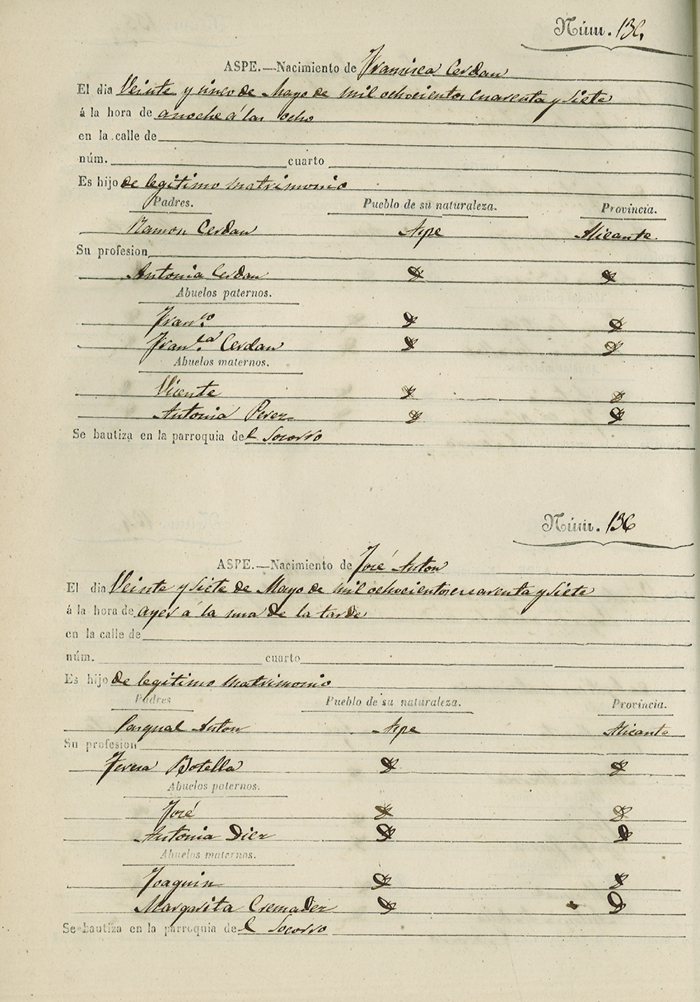 Núm. 136.
ASPE.—Nacimiento de Francisca Cerdan
El dia Veinte y cinco de Mayo de mil ochocientos cuarenta y siete
á la hora de anoche á las ocho
en la calle de
núm. cuarto
Es hijo de legitimo matrimonio
Padres. Pueblo de su naturaleza. Provincia.
Ramon Cerdan Aspe Alicante
Su profesion
Antonia Cerdan
Abuelos paternos.
Franco
Franca Cerdan
Abuelos maternos.
Vicente
Antonia Perez
Se bautiza en la parroquia del Socorro
Núm. 136
ASPE.—Nacimiento de José Anton
El dia Veinte y siete de Mayo de mil ochocientos cuarenta y siete
á la hora de ayer á la una de la tarde
en la calle de
núm. cuarto
Es hijo de legitimo matrimonio
Padres Pueblo de su naturaleza. Provincia.
Pasqual Anton Aspe Alicante
Su profesion
Botella
Abuelos paternos.
José
Antonia Diez
Abuelos maternos.
Joaquin
Margarita Cremades
Se bautiza en la parroquia del Socorro